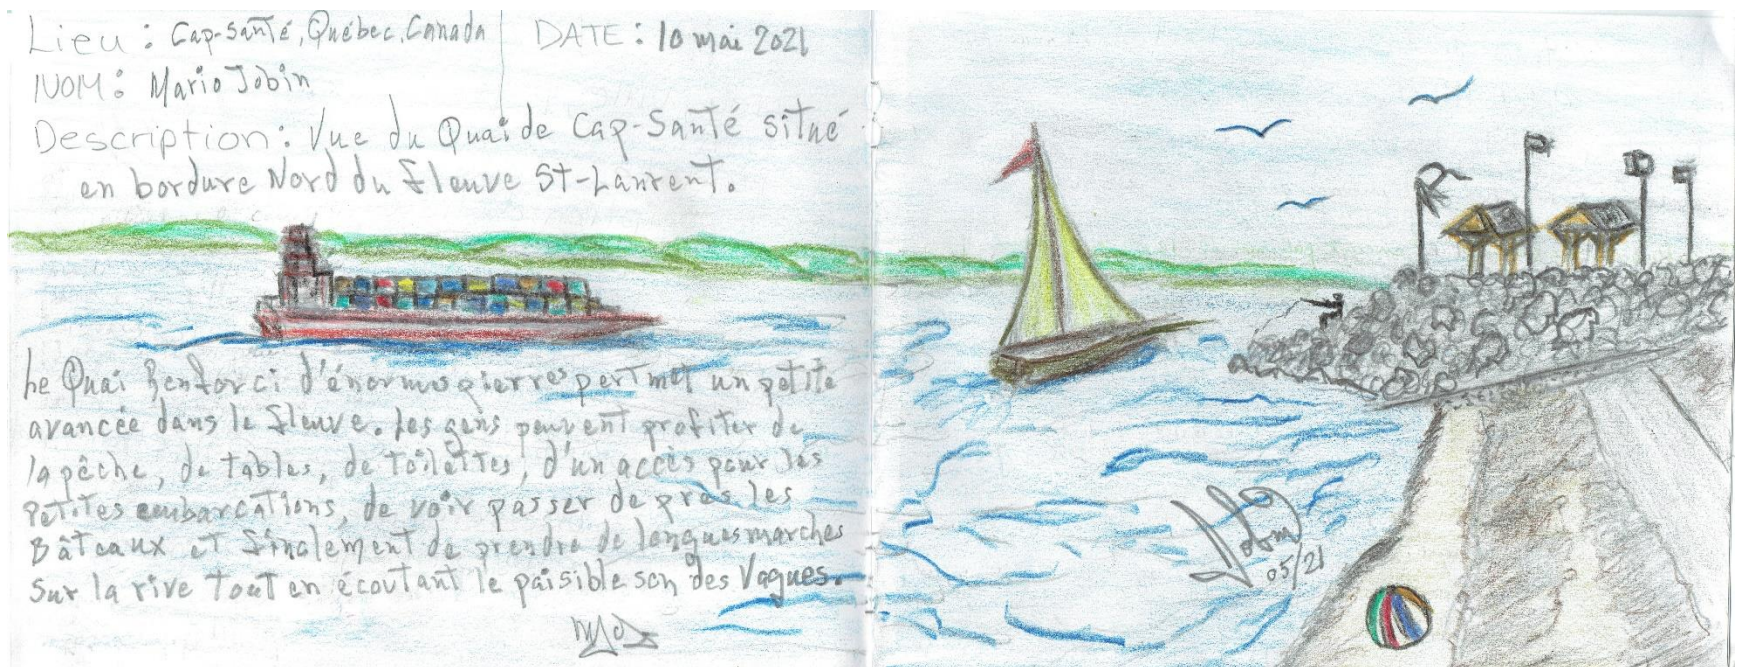 Lieu : Cap-Santé, Québec, Canada
DATE : 10 mai 2021
NOM : Mario Jobin
Description : Vue du Quai de Cap-Santé situé
en bordure Nord du fleuve St-Laurent.
Le Quai Renforci d'énormes pierres pertmet un petite
avancée dans le fleuve. Les gens peuvent profiter de
la pêche, de tables, de toilettes, d'un accès pour les
petites embarcations, de voir passer de près les
Bâteaux et finalement de prendre de longues marches
Sur la rive tout en écoutant le paisible son des Vagues.
Jobin
05/21